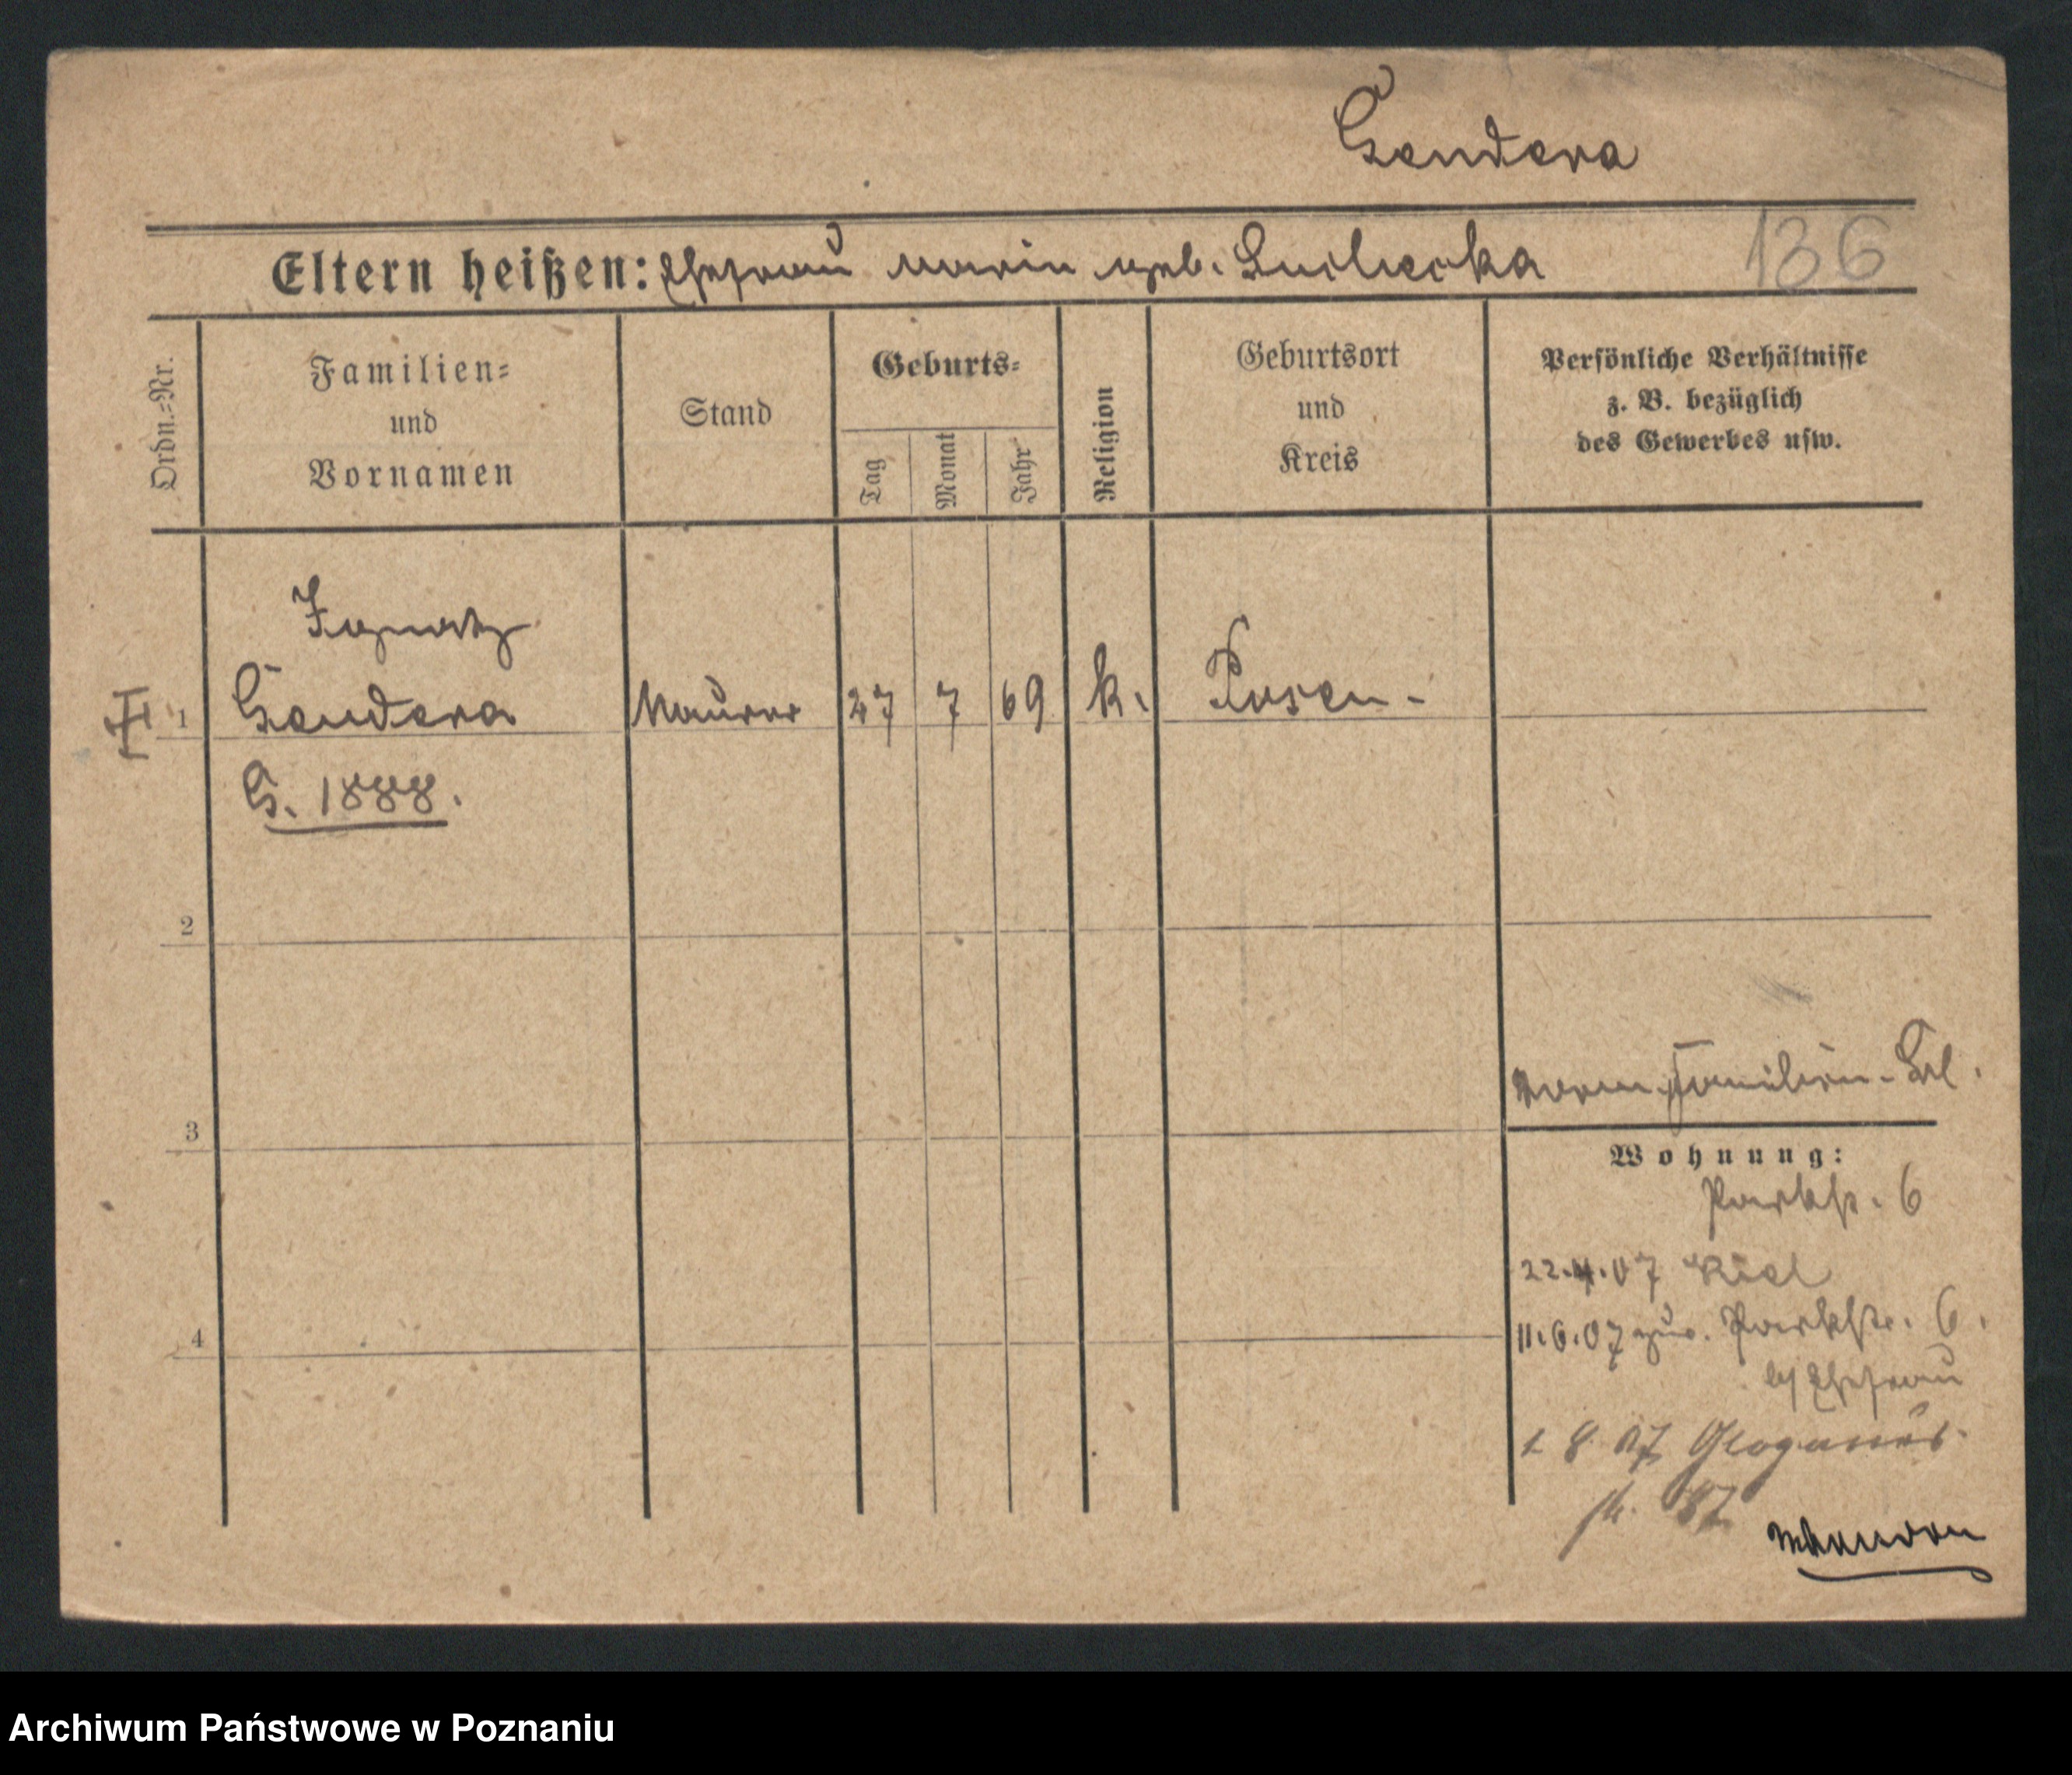 Gendera
Eltern heißen: Ehefrau Marie geb. Suchecka
136
Ordn.=Nr.
Familien=
und
Vornamen
Stand
Geburts=
Tag
Monat
Jahr
Religion
Geburtsort
und
Kreis
Persönliche Verhältnisse
z. B. bezüglich
des Gewerbes usw.
Ignatz
1 Gendera Maurer 27 7 69 k. Posen
G. 1888.
2
Familien
3
Wohnung:
Parkstr. 6
22.4.07 Kiel
4
11.6.07 zur. Parkstr. 6.
b/ Ehefrau
1 8 07 Glogauer
str. 87
Archiwum Państwowe w Poznaniu